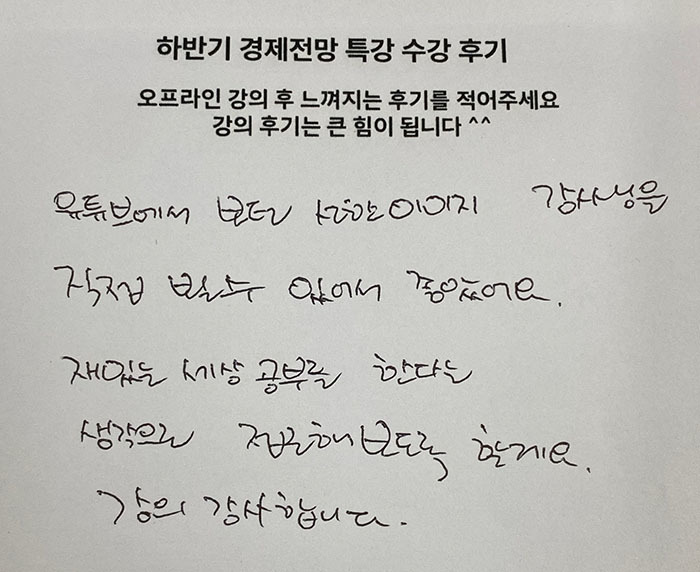 하반기 경제전망 특강 수강 후기
오프라인 강의 후 느껴지는 후기를 적어주세요
강의 후기는 큰 힘이 됩니다 ^^
유튜브에서 보던 선한이미지
직접 뵐수 있어서 좋았어요.
재밌는 세상 공부를 한다는
생각으로 접근해보도록 할게요.
강의 감사합니다.